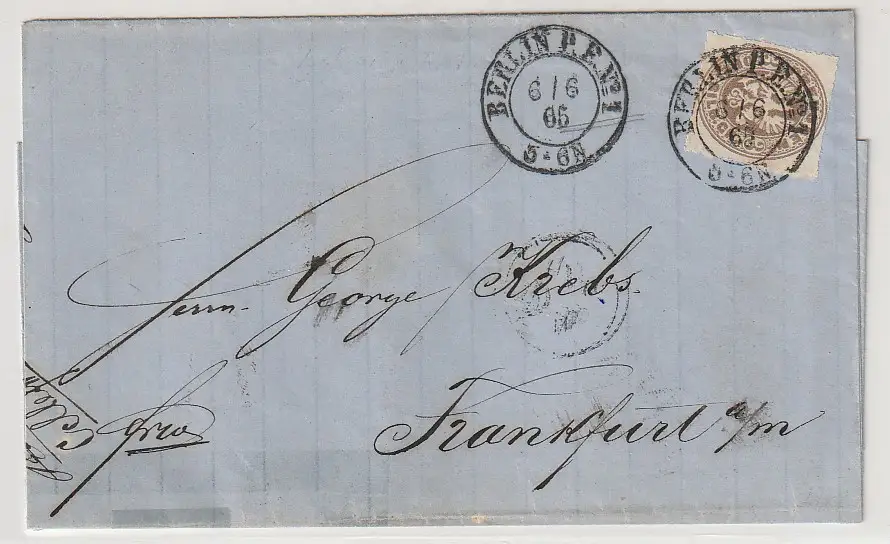 BERLIN P.E.№1
6 / 6
65
5-6N
BERLIN P.E.№1
6 / 6
65
5-6N
Herrn George Krebs.
frco
Frankfurt a/m